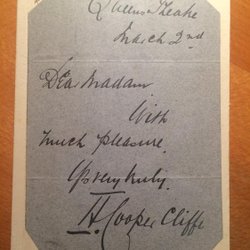 Queens Theatre
March 2nd
Dear Madam
With
much pleasure.
Yrs very truly.
H. Cooper Cliffe